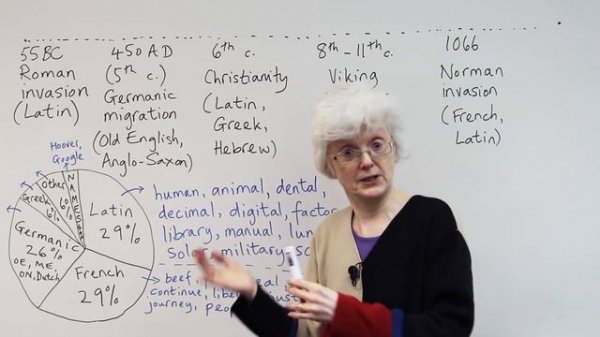 55BC
Roman
invasion
(Latin)
450 AD
(5th c.)
Germanic
migration
(Old English,
Anglo-Saxon)
6th c.
Christianity
(Latin,
Greek,
Hebrew)
8th-11thc.
Viking
1066
Norman
invasion
(French,
Latin)
Hoover,
Google
NAMES
Other
6%
Greek
6%
Latin
29%
Germanic
26%
OE, ME,
ON, Dutch
French
29%
human, animal, dental,
decimal, digital, factor
library, manual,
military,
beef,
continue,
journey,